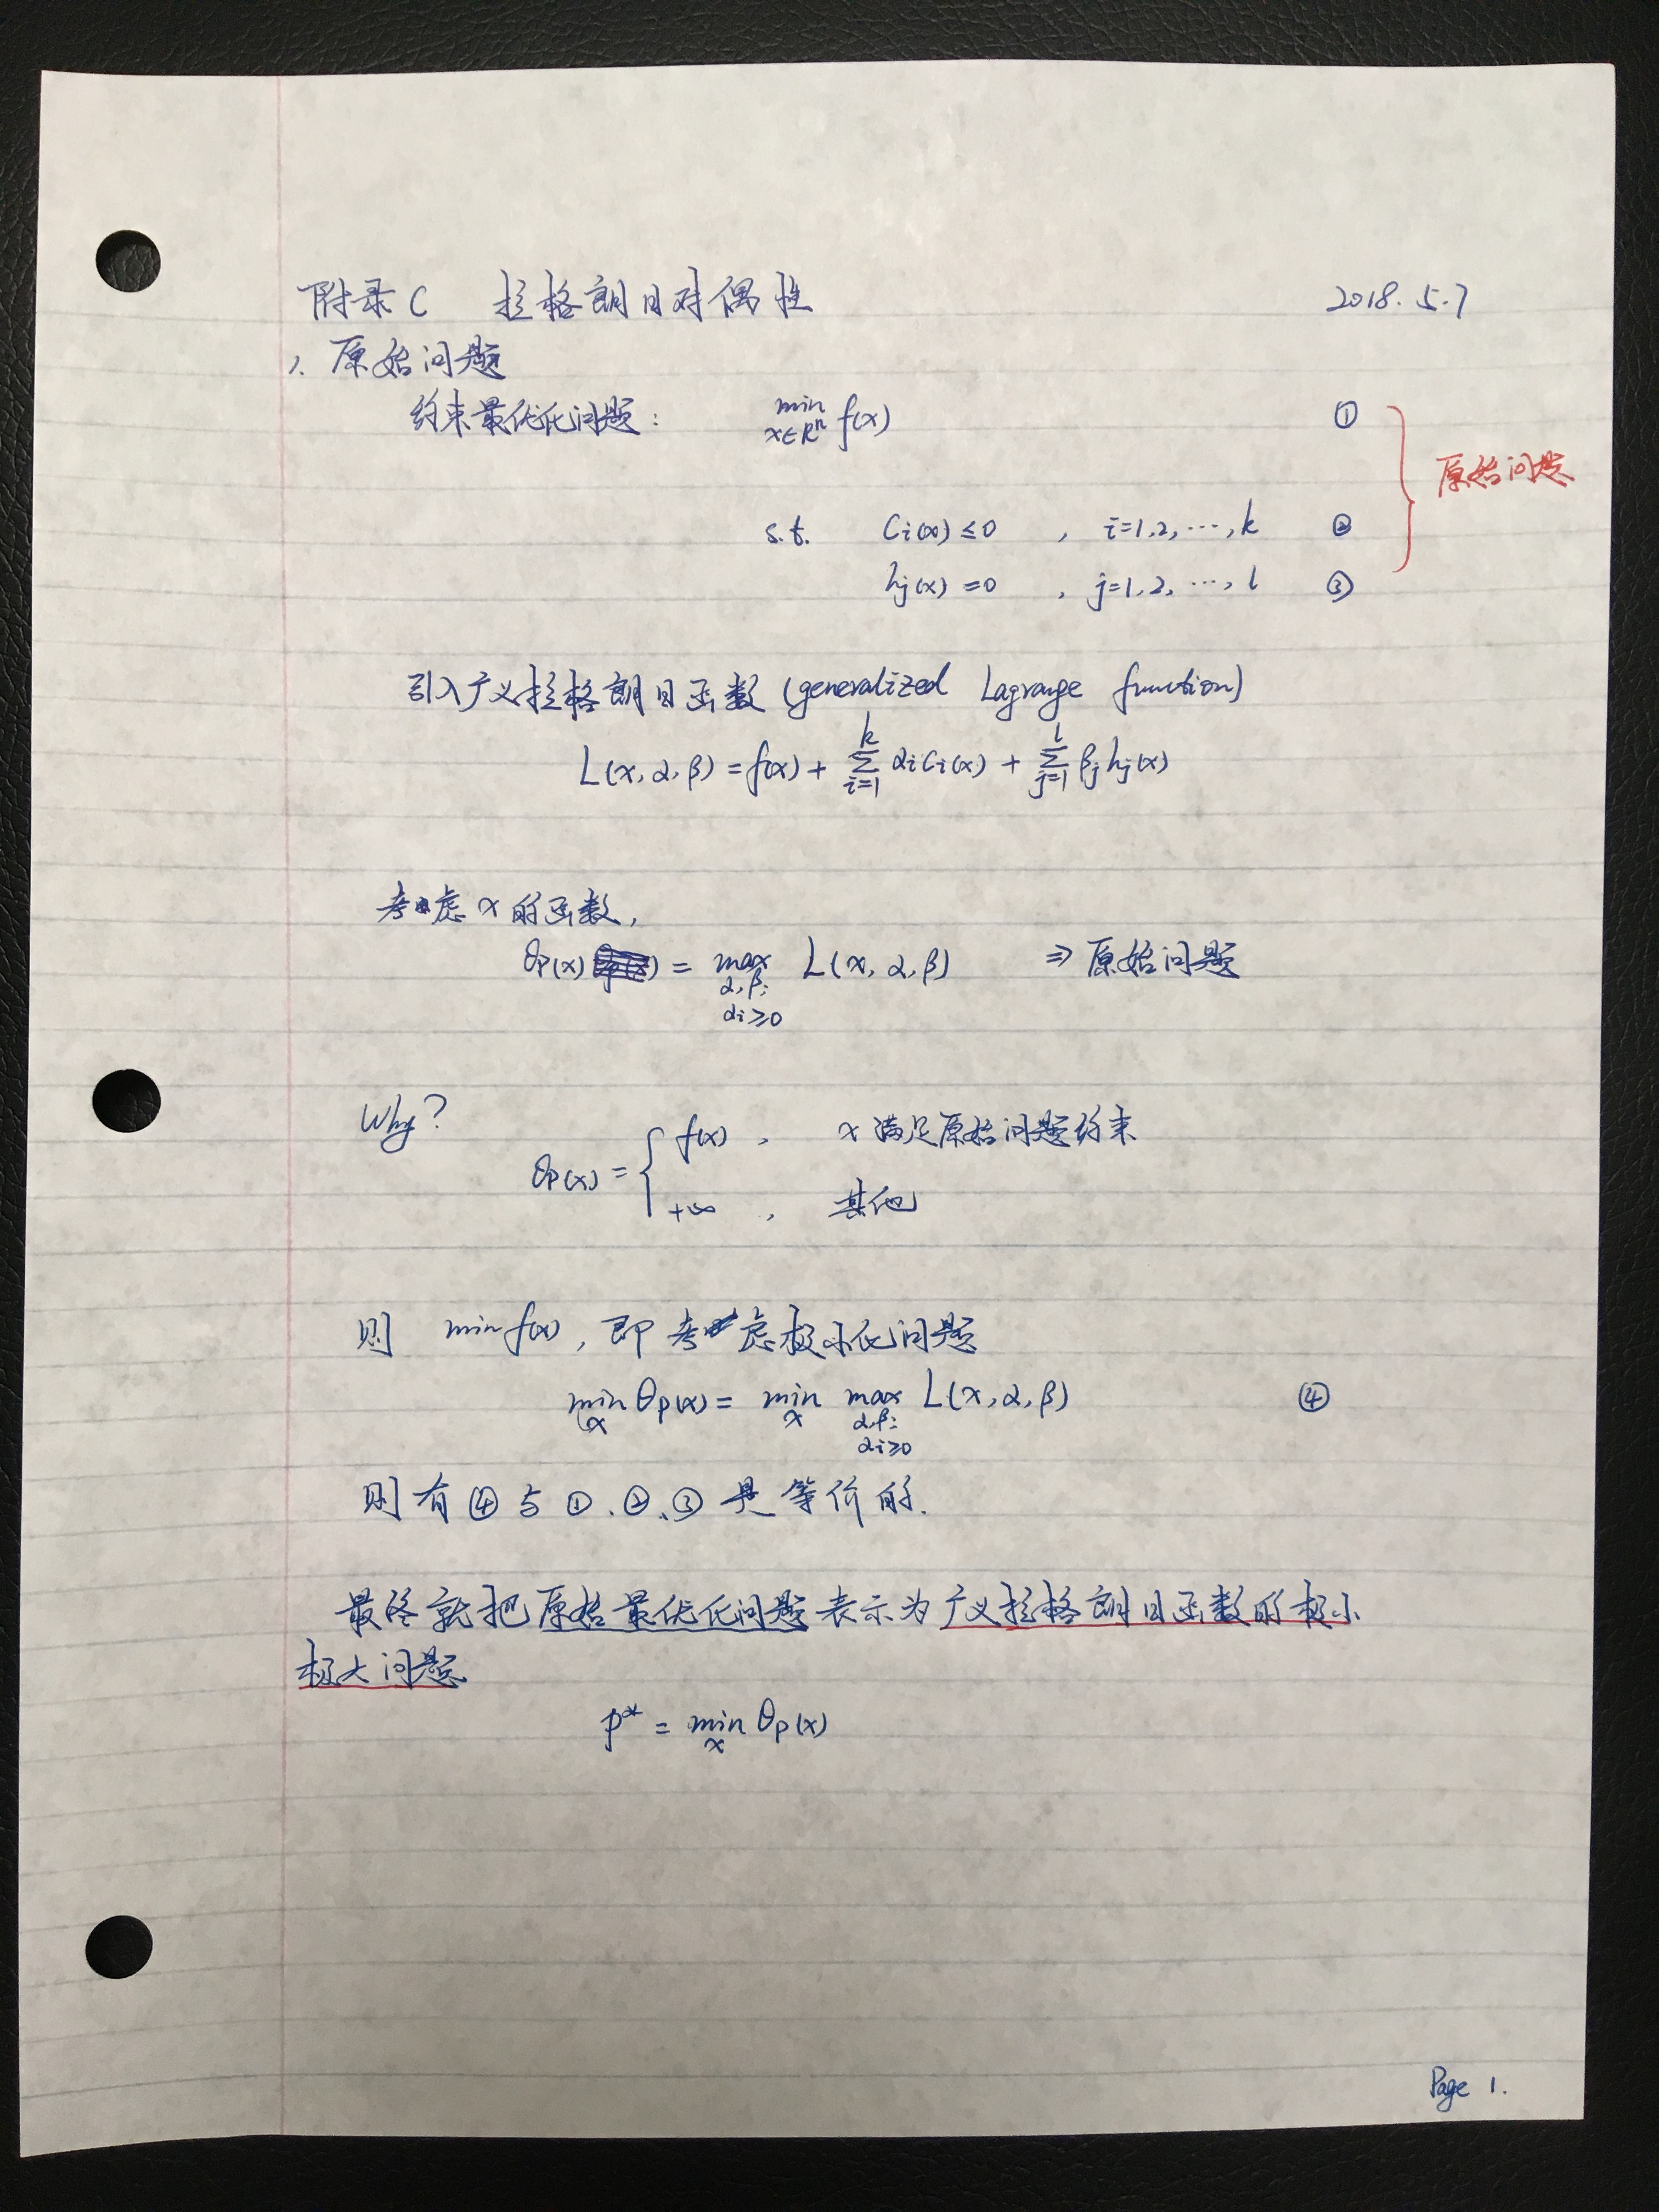 附录C 拉格朗日对偶性 2018.5.7
1. 原始问题
约束最优化问题: min f(x) ①
x∈Rⁿ
原始问题
s.t. Ci(x)≤0 , i=1,2,…,k ②
hj(x)=0 , j=1,2,…,l ③
引入广义拉格朗日函数(generalized Lagrange function)
L(x,α,β)=f(x)+ Σ_{i=1}^{k} αiCi(x) + Σ_{j=1}^{l} βjhj(x)
考虑x的函数,
θP(x) = max L(x,α,β) ⇒ 原始问题
α,β:
αi≥0
Why?
θP(x)= { f(x) , x满足原始问题约束
+∞ , 其他
则 min f(x), 即考虑极小化问题
min θP(x)= min max L(x,α,β) ④
x x α,β:
αi≥0
则有④与①、②、③是等价的.
最终就把原始最优化问题表示为广义拉格朗日函数的极小
极大问题
p* = min θP(x)
x
Page 1.